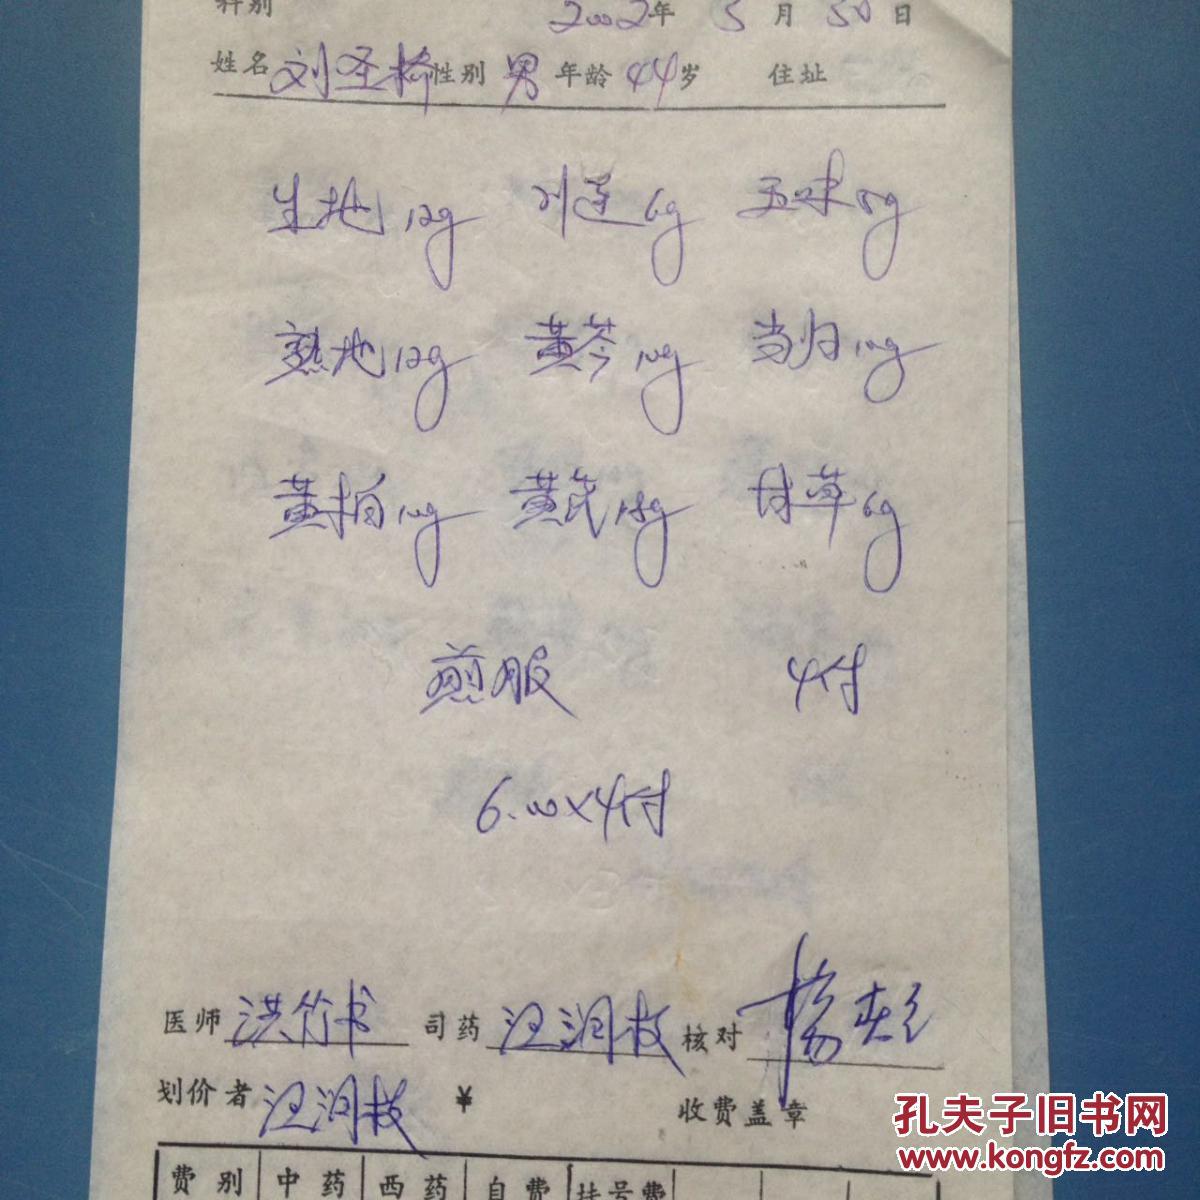 科别 2002年 5月 30日
姓名 刘圣桥 性别 男 年龄 44岁 住址
生地12g 川连6g 五味5g
熟地12g 黄芩10g 当归10g
黄柏10g 黄芪15g 甘草6g
煎服 4付
6.00×4付
医师 洪竹书 司药 汪润枝 核对 杨
划价者 汪润枝 ¥ 收费盖章
费别 中药 西药 自费 挂号费
孔夫子旧书网
www.kongfz.com